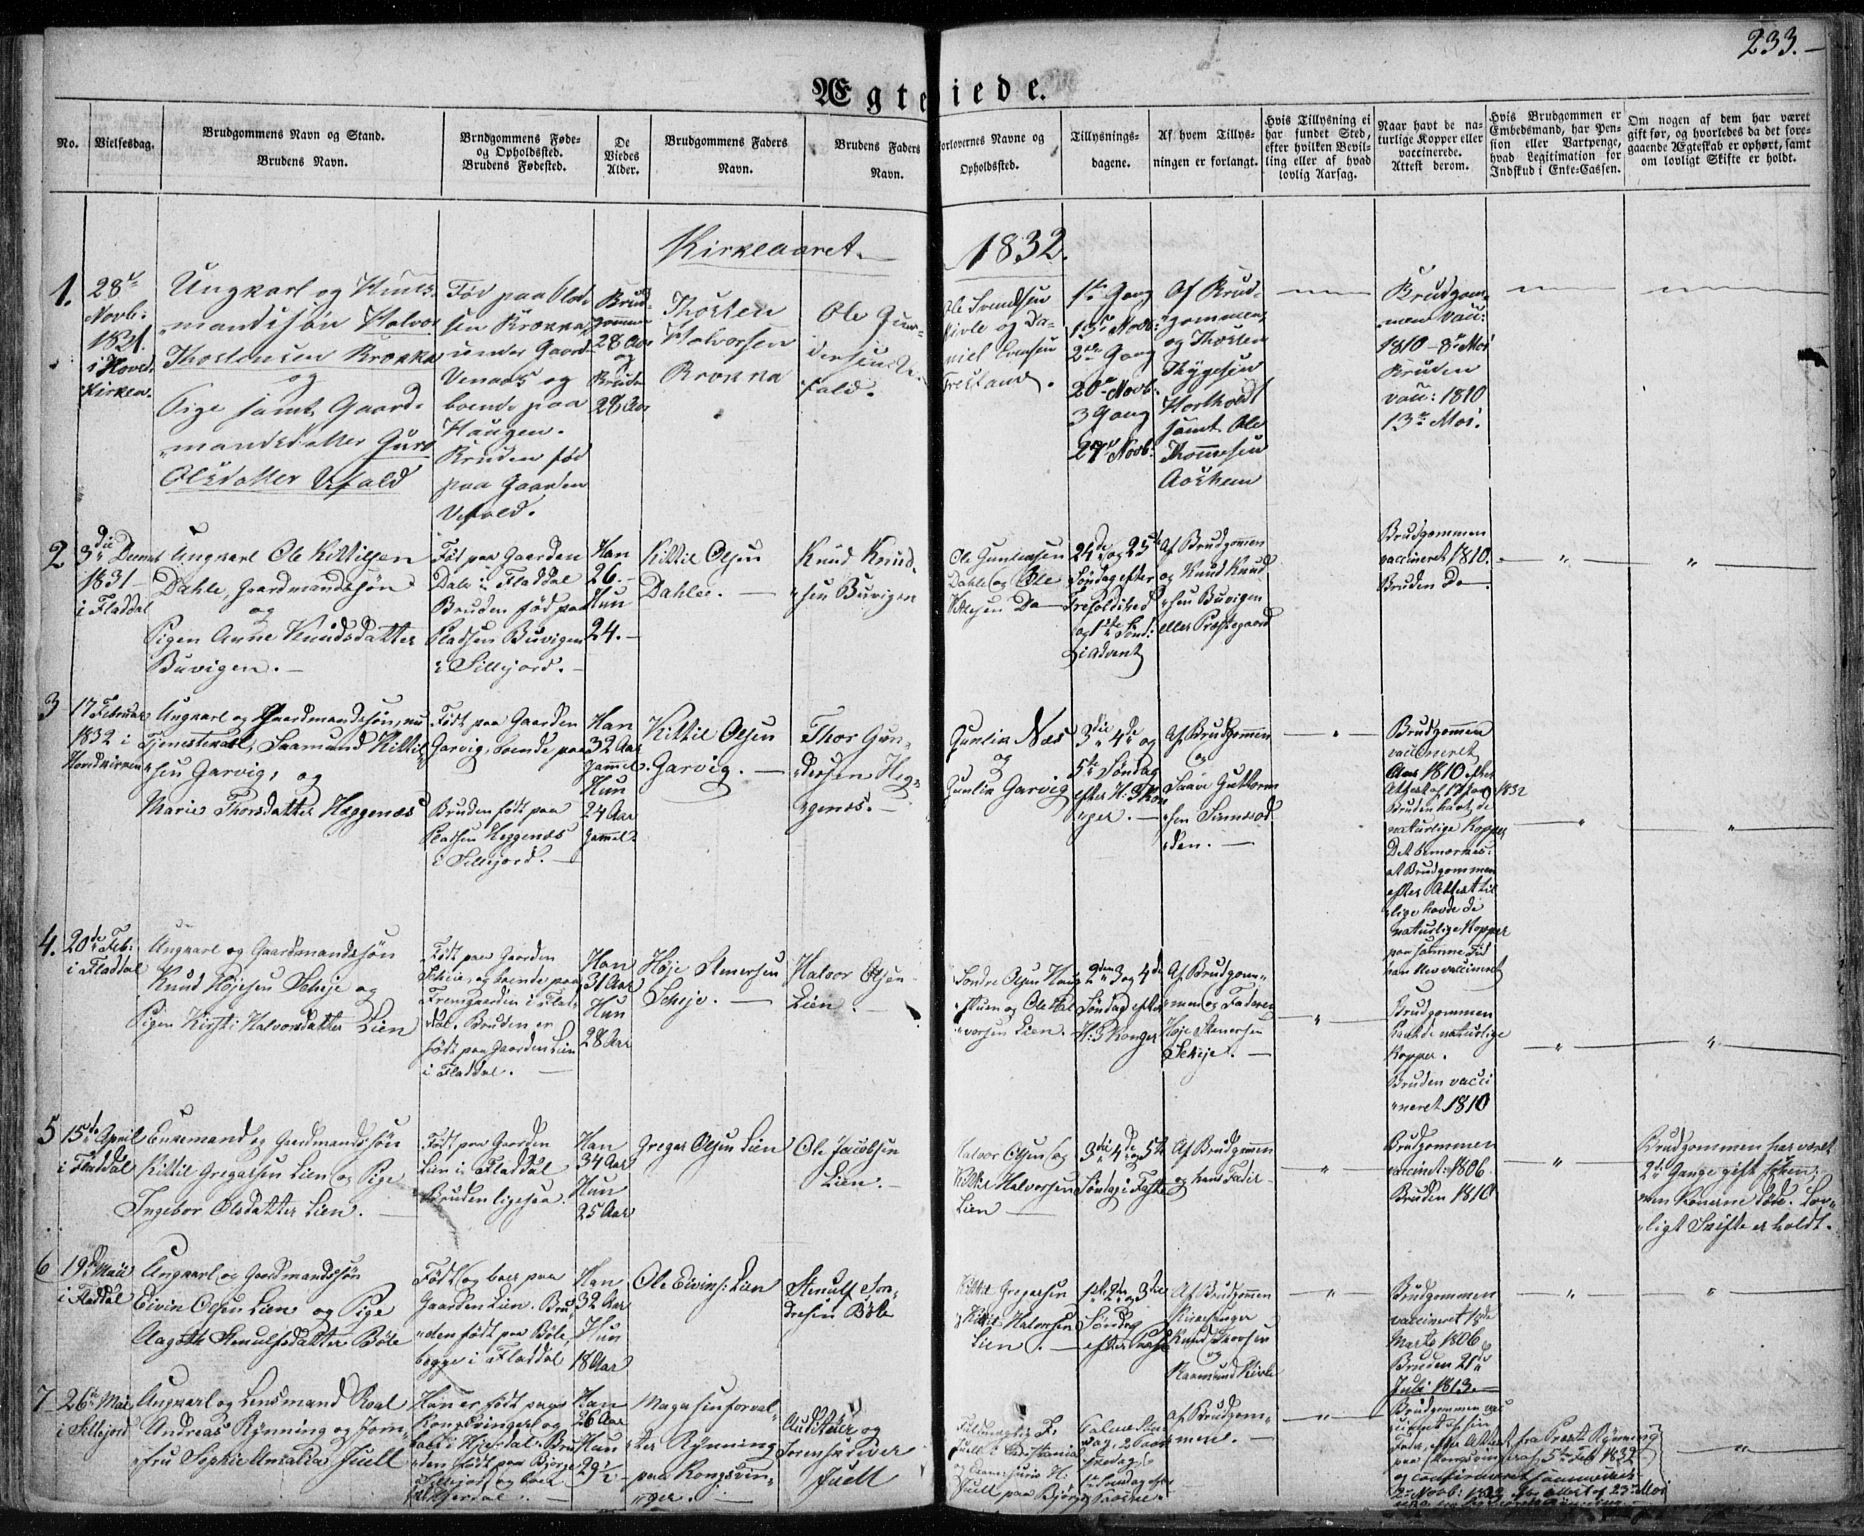 233.
Ægteviede.
No.
Vielsesdag.
Brudgommens Navn og Stand.
Brudens Navn.
Brudgommens Føde-
og Opholdssted.
Brudens Fødested.
De
Viedes
Alder.
Brudgommens Faders
Navn.
Brudens Faders
Navn.
Forlovernes Navne og
Opholdssted.
Tillysnings-
dagene.
Af hvem Tillys-
ningen er forlangt.
Hvis Tillysning ei
har fundet Sted,
efter hvilken Bevil-
ling eller af hvad
lovlig Aarsag.
Naar havt de na-
turlige Kopper eller
vaccinerede.
Attest derom.
Hvis Brudgommen er
Embedsmand, har Pen-
sion eller Vartpenge,
hvad Legitimation for
Indskud i Enke-Cassen.
Om nogen af dem har været
gift før, og hvorledes da det fore-
gaaende Ægteskab er ophørt, samt
om lovligt Skifte er holdt.
Kirkeaaret 1832.
1.
28de
Novb:
1831
i Hoved-
Kirken.
Ungkarl og Huus-
mandssøn Halvor
Thostensen Brokka
og
Pige samt Gaard-
mandsdatter Guro
Olsdatter Ufald
Fød paa Plad-
sen Brokka
under Gaard
Venaas og
boende paa
Haugen.
Bruden fød
paa Gaarden
Ufald.
Brud-
gommen
28 Aar
og
Bruden
28 Aar
Thosten
Halvorsen
Brokka
Ole Gun-
dersen U-
fald.
Ole Svendsen
Kivle og Da-
niel Svensen
1ste Gang
13de Novb:
2den Gang
20de Novb:
3 Gang
27de Novb:
Af Brud-
gommen
og Thosten
Thygesen
samt Ole
Thommesen
Aasheim
Brudgom-
men vacc:
1810 8de Mai
Bruden
vacc: 1810
13de Mai.
2
3die Decemb
1831
i Fladdal
Ungkarl Ole Kittilsen
Dahle, Gaardmandssøn
og
Pigen Anne Knudsdatter
Buvigen.
Fød paa Gaarden
Dale i Fladdal
Bruden fød paa
Pladsen Buvigen
i Sillejord.
Han
26.
Hun
24.
Kittil Olsen
Dahle.
Knud Knud-
sen Buvigen
Ole Gunleiksen
Dahle og Ole
24de og 25de
Søndag efter
Trefoldighed
og 1ste Sønd:
i Advent
Af Brudgommen
og Knud Knud
sen Buvigen
eller Præstegaard
Brudgommen
vaccineret 1810.
Bruden Do
3
17 Februar
1832 i
Hovedkirken
Ungkarl og Gaardmandssøn, nu
Tjenestekarl, Saamund Kittil-
sen Garvig, og
Marie Thorsdatter Heggenæs
Født paa Gaarden
Garvig, boende paa
Bruden født paa
Pladsen Heggenæs
i Sillejord.
Han
32 Aar
gammel.
Hun
24 Aar
gammel
Kittil Olsen
Garvig.
Thor Gun-
dersen Heg-
genæs.
Gunleik Næs
og
Gunleik Garvig
3die 4de og
5te Søndag
efter H: 3 Kon
ger.
Af Brudgommen
og
Saave Guttorm
sen
Brudgommen
vaccineret
Aar 1810 efter
Attest af 1832
Bruden havt de
naturlige Kopper
Det bemærkes:
at Brudgommen
efter Attest til
lige havde de
naturlige Kopper
paa samme Tid
han blev vaccineret
4.
20de Feb:
i Fladdal
Ungkarl og Gaardmandssøn
Knud Højesen Scheje og
Pigen Kirsti Halvorsdatter Lien
Født paa Gaarden
Scheie, og boende paa
Fremgaarden i Flad-
dal. Bruden er
født paa Gaarden Lien
i Fladdal.
Han
31 Aar
Hun
28 Aar
Høje Stenersen
Scheje.
Halvor Olsen
Lien.
Sondre Olsen Haug
og Ole Hal
vorsen Lien.
2den 3 og 4de
Søndag efter
H: 3 Konger
Af Brudgom-
men og Faderen
Høje Stenersen
Scheje.
Brudgommen
havt de naturlige
Kopper.
Bruden vacci
neret 1810
5
15de April
i Fladdal
Enkemand og Gaardmandssøn
Kittil Gregarsen Lien og Pige
Ingebor Olsdatter Lien.
Født paa Gaarden
Lien i Fladdal
Bruden ligesaa.
Han
34 Aar
Hun
25 Aar
Gregar Olsen Lien
Ole Jacobsen
Lien.
Halvor Olsen og
Kittil Halvorsen
Lien
3die 4de og 5te
Søndag i Faste
Af Brudgommen
og hans Fader
Brudgommen
vaccinet: 1806
Bruden 1810
Brudgommen har været
2de Gange gift
men Konerne døde. Lov-
ligt Skifte er holdt.
6
19de Maii
i Fladdal
Ungkarl og Gaardmandssøn
Eivin Olsen Lien og Pige
Aagoth Stenulfsdatter Bøle
Født og boer paa
Gaarden Lien. Bru-
den født paa Bøle,
begge i Fladdal
Han
32 Aar
Hun
18 Aar
Ole Eivins: Lien
Stenulf Son-
dresen Bøle
Kittil Gregarsen
og Kittil Halvorsen
Lien.
1ste 2den og 3die
Søndag
efter Paaske
Af Brudgommen
Kirkesanger
Knud
og
Brudgommen
vaccineret 18de
Marts 1806
Bruden 21de
Juli 1813.
7
26de Mai
i Sillejord
Ungkarl og Lensmand Roal
Andreas Rynning og Jom-
fru Sophie Juell
Han er født paa
Kongsvinger og
boer i Hjerdal. Bru
den født paa Bjerge
i Sillejord, og boer
Han
26 Aar
Hun
29½
Magasinforval-
ter Rynning
paa Kongsvin-
ger.
Auditeur og
Sorenskriver
Juell
af Brudgom-
men.
Brudgommen vac
fra Præst Rynning
paa Kongsvinger af 5te Feb 1832